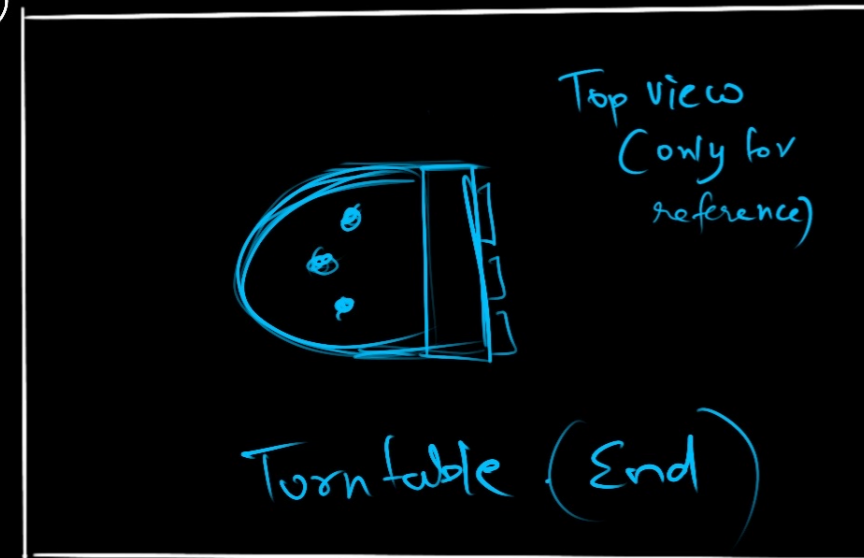 Top view
(only for
reference)
Turntable (End)